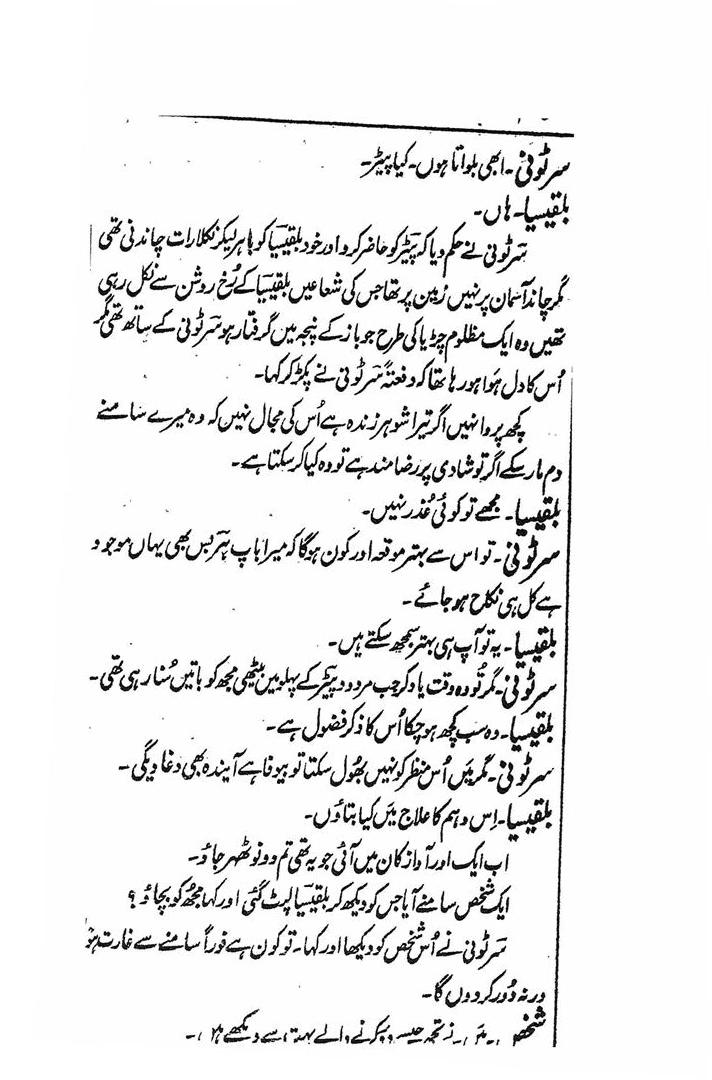 سرٹونی۔ ابھی بلواتا ہوں۔ کیا پیٹر۔
بلقیسیا۔ ہاں۔
سرٹونی نے حکم دیا کہ پیٹر کو حاضر کرو اور خود بلقیسیا کو باہر لیکر نکلا رات چاندنی تھی
مگر چاند آسمان پر نہیں زمین پر تھا جس کی شعاعیں بلقیسیا کے رُخ روشن سے نکل رہی
تھیں وہ ایک مظلوم چڑیا کی طرح جو باز کے پنجہ میں گرفتار ہو سرٹونی کے ساتھ تھی مگر
اُس کا دل ہَوا ہو رہا تھا کہ دفعتہً سرٹونی نے پکڑ کر کہا۔
کچھ پروا نہیں اگر تیرا شوہر زندہ ہے اُس کی مجال نہیں کہ وہ میرے سامنے
دم مار سکے اگر تو شادی پر رضامند ہے تو وہ کیا کر سکتا ہے۔
بلقیسیا۔ مجھے تو کوئی عُذر نہیں۔
سرٹونی۔ تو اس سے بہتر موقعہ اور کون ہو گا کہ میرا باپ ہربس بھی یہاں موجود
ہے کل ہی نکاح ہو جائے۔
بلقیسیا۔ یہ تو آپ ہی بہتر سمجھ سکتے ہیں۔
سرٹونی۔ مگر تُو وہ وقت یاد کر جب مردود پیٹر کے پہلو میں بیٹھی مجھ کو باتیں سُنا رہی تھی۔
بلقیسیا۔ وہ سب کچھ ہو چکا اُس کا ذکر فضول ہے۔
سرٹونی۔ مگر میَں اُس منظر کو نہیں بھُول سکتا تو بیوفا ہے آیندہ بھی دغا دیگی۔
بلقیسیا۔ اِس وہم کا علاج میَں کیا بتاؤں۔
اب ایک اور آواز کان میں آئی جو یہ تھی تم دونو ٹھہر جاؤ۔
ایک شخص سامنے آیا جس کو دیکھ کر بلقیسیا لپٹ گئی اور کہا مجھُ کو بچاؤ؟
سرٹونی نے اُس شخص کو دیکھا اور کہا۔ تو کون ہے فوراً سامنے سے غارت ہو
ورنہ دُور کر دوں گا۔
شخص۔ میَں نے تجھ جیسے کرنے والے بہت سے دیکھے ہیں۔